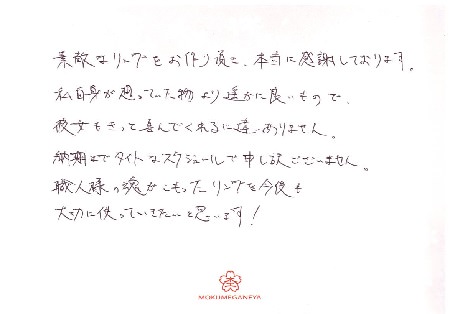 素敵なリングをお作り頂き、本当に感謝しております。
私自身が想っていた物より遥かに良いもので、
彼女もきっと喜んでくれるに違いありません。
納期までタイトなスケジュールで申し訳ございません。
職人様の魂がこもったリングを今後も
大切に使っていきたいと思います!
MOKUMEGANEYA